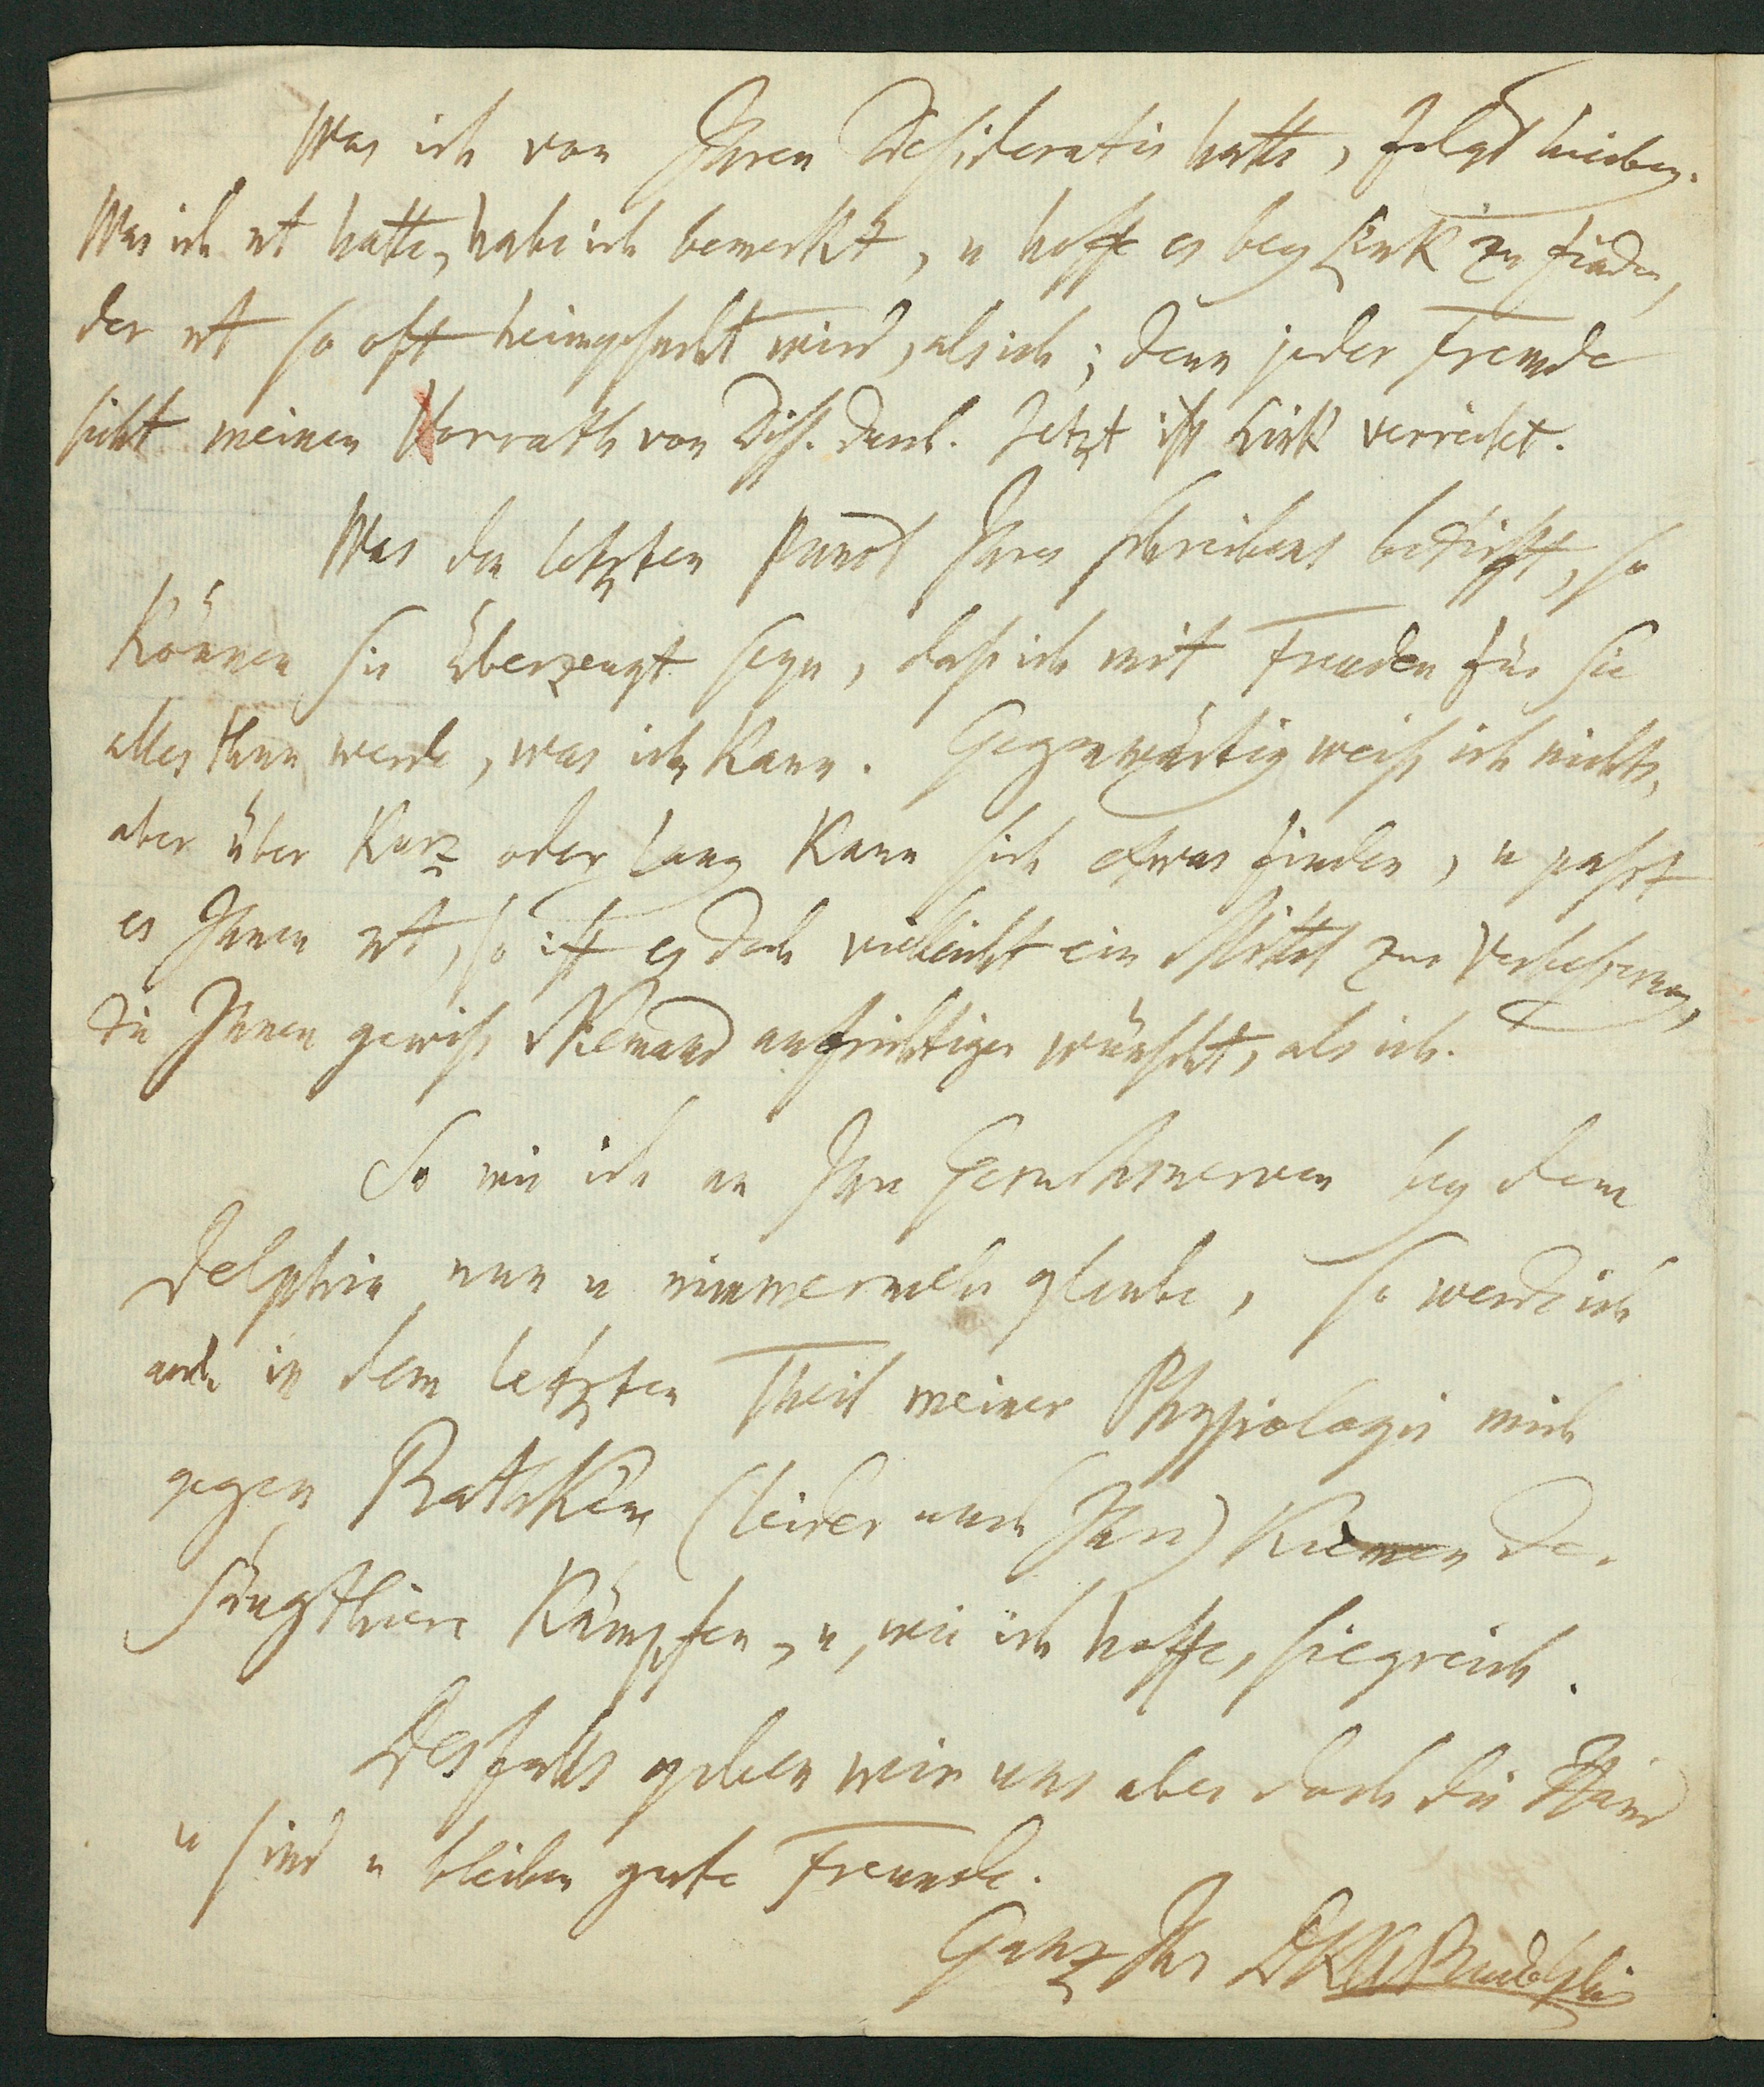 Was ich von Ihren Desideratis hatte, folgt hierbey.
Was ich nt hatte, habe ich bemerkt, u hoffe es bey Link zu finden,
der nt so oft heimgesucht wird, als ich; denn jeder Fremde
sieht meinen Vorrath von Diss. durch. Jetzt ist Link verreiset.
Was den letzten Punct Ihres Schreibens betrifft, so
können Sie überzeugt seyn, daß ich mit Freuden für Sie
alles thun werde, was ich kann. Gegenwärtig weiß ich nichts,
aber über kurz oder lang kann sich etwas finden, u paßt
es Ihnen nt, so ist es doch vielleicht ein Mittel zur Verbesserung,
die Ihnen gewiß Niemand aufrichtiger wünscht, als ich.
So wie ich an Ihre Geruchsnerven bey dem
Delphin nun u nimmermehr glaube, so werde ich
auch in dem letzten Theil meiner Physiologie mich
gegen Rathkens (leider auch Ihre) Kiemen der
Säugthiere kämpfen, u, wie ich hoffe, siegreich.
Desfalls geben wir uns aber doch die Hand
u sind u bleiben gute Freunde.
Ganz Ihr DKARudolphi